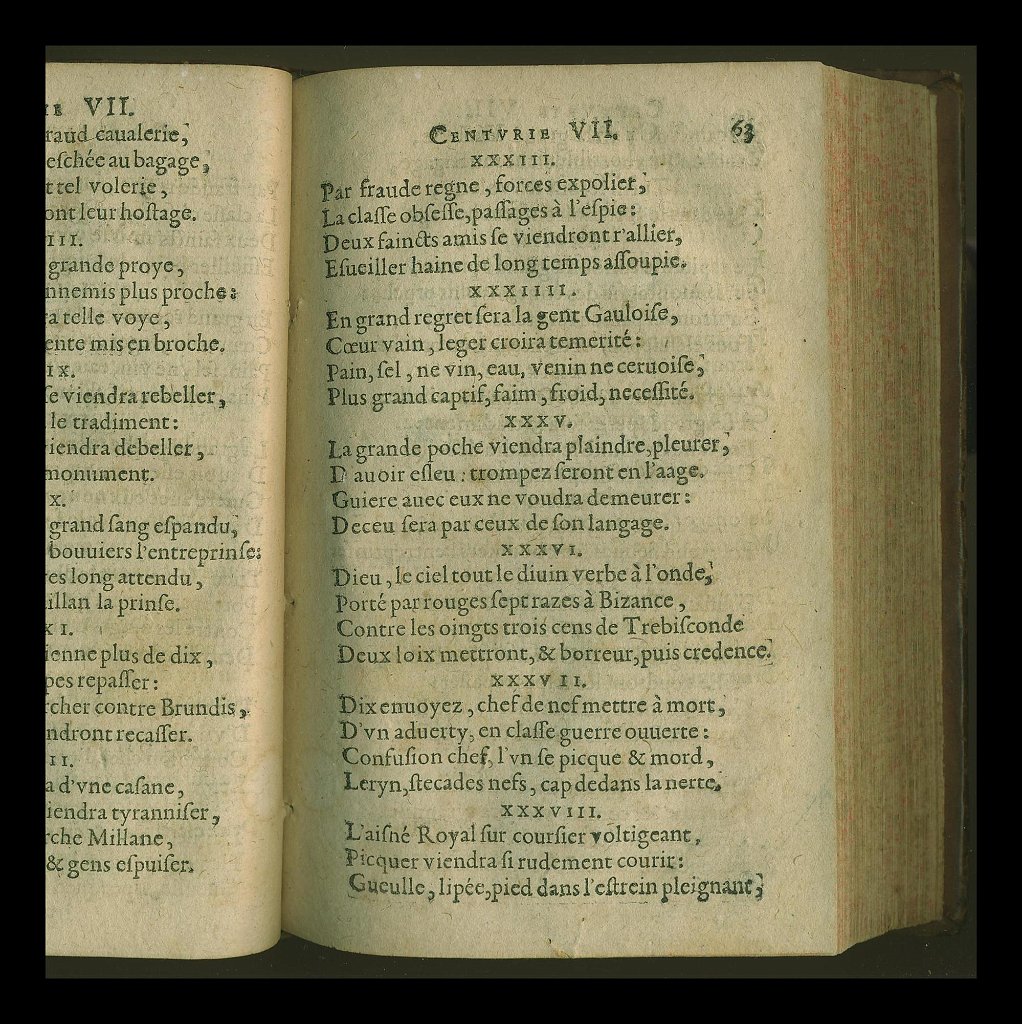 VII.
raud caualerie,
eſchée au bagage,
t tel volerie,
ont leur hoſtage.
III.
grande proye,
nnemis plus proche:
ra telle voye,
ente mis en broche.
IX.
ſe viendra rebeller,
le tradiment:
viendra debeller,
monument.
X.
grand ſang eſpandu,
bouuiers l'entreprinſe:
res long attendu,
illan la prinſe.
XI.
ienne plus de dix,
pes repaſſer:
rcher contre Brundis,
ndront recaſſer.
II.
a d'vne caſane,
iendra tyranniſer,
rche Millane,
& gens eſpuiſer.
CENTVRIE VII. 63
XXXIII.
Par fraude regne, forces expolier,
La claſſe obſeſſe, paſſages à l'eſpie:
Deux faincts amis ſe viendront r'allier,
Eſueiller haine de long temps aſſoupie.
XXXIIII.
En grand regret ſera la gent Gauloiſe,
Cœur vain, leger croira temerité:
Pain, ſel, ne vin, eau, venin ne ceruoiſe,
Plus grand captif, faim, froid, neceſſité.
XXXV.
La grande poche viendra plaindre, pleurer,
D auoir eſleu: trompez ſeront en l'aage.
Guiere auec eux ne voudra demeurer:
Deceu ſera par ceux de ſon langage.
XXXVI.
Dieu, le ciel tout le diuin verbe à l'onde,
Porté par rouges ſept razes à Bizance,
Contre les oingts trois cens de Trebiſconde
Deux loix mettront, & horreur, puis credence.
XXXVII.
Dix enuoyez, chef de nef mettre à mort,
D'vn aduerty, en claſſe guerre ouuerte:
Confuſion chef, l'vn ſe picque & mord,
Leryn, ſtecades nefs, cap dedans la nerte.
XXXVIII.
L'aiſné Royal ſur courſier voltigeant,
Picquer viendra ſi rudement courir:
Gueulle, lipée, pied dans l'eſtrein pleignant,